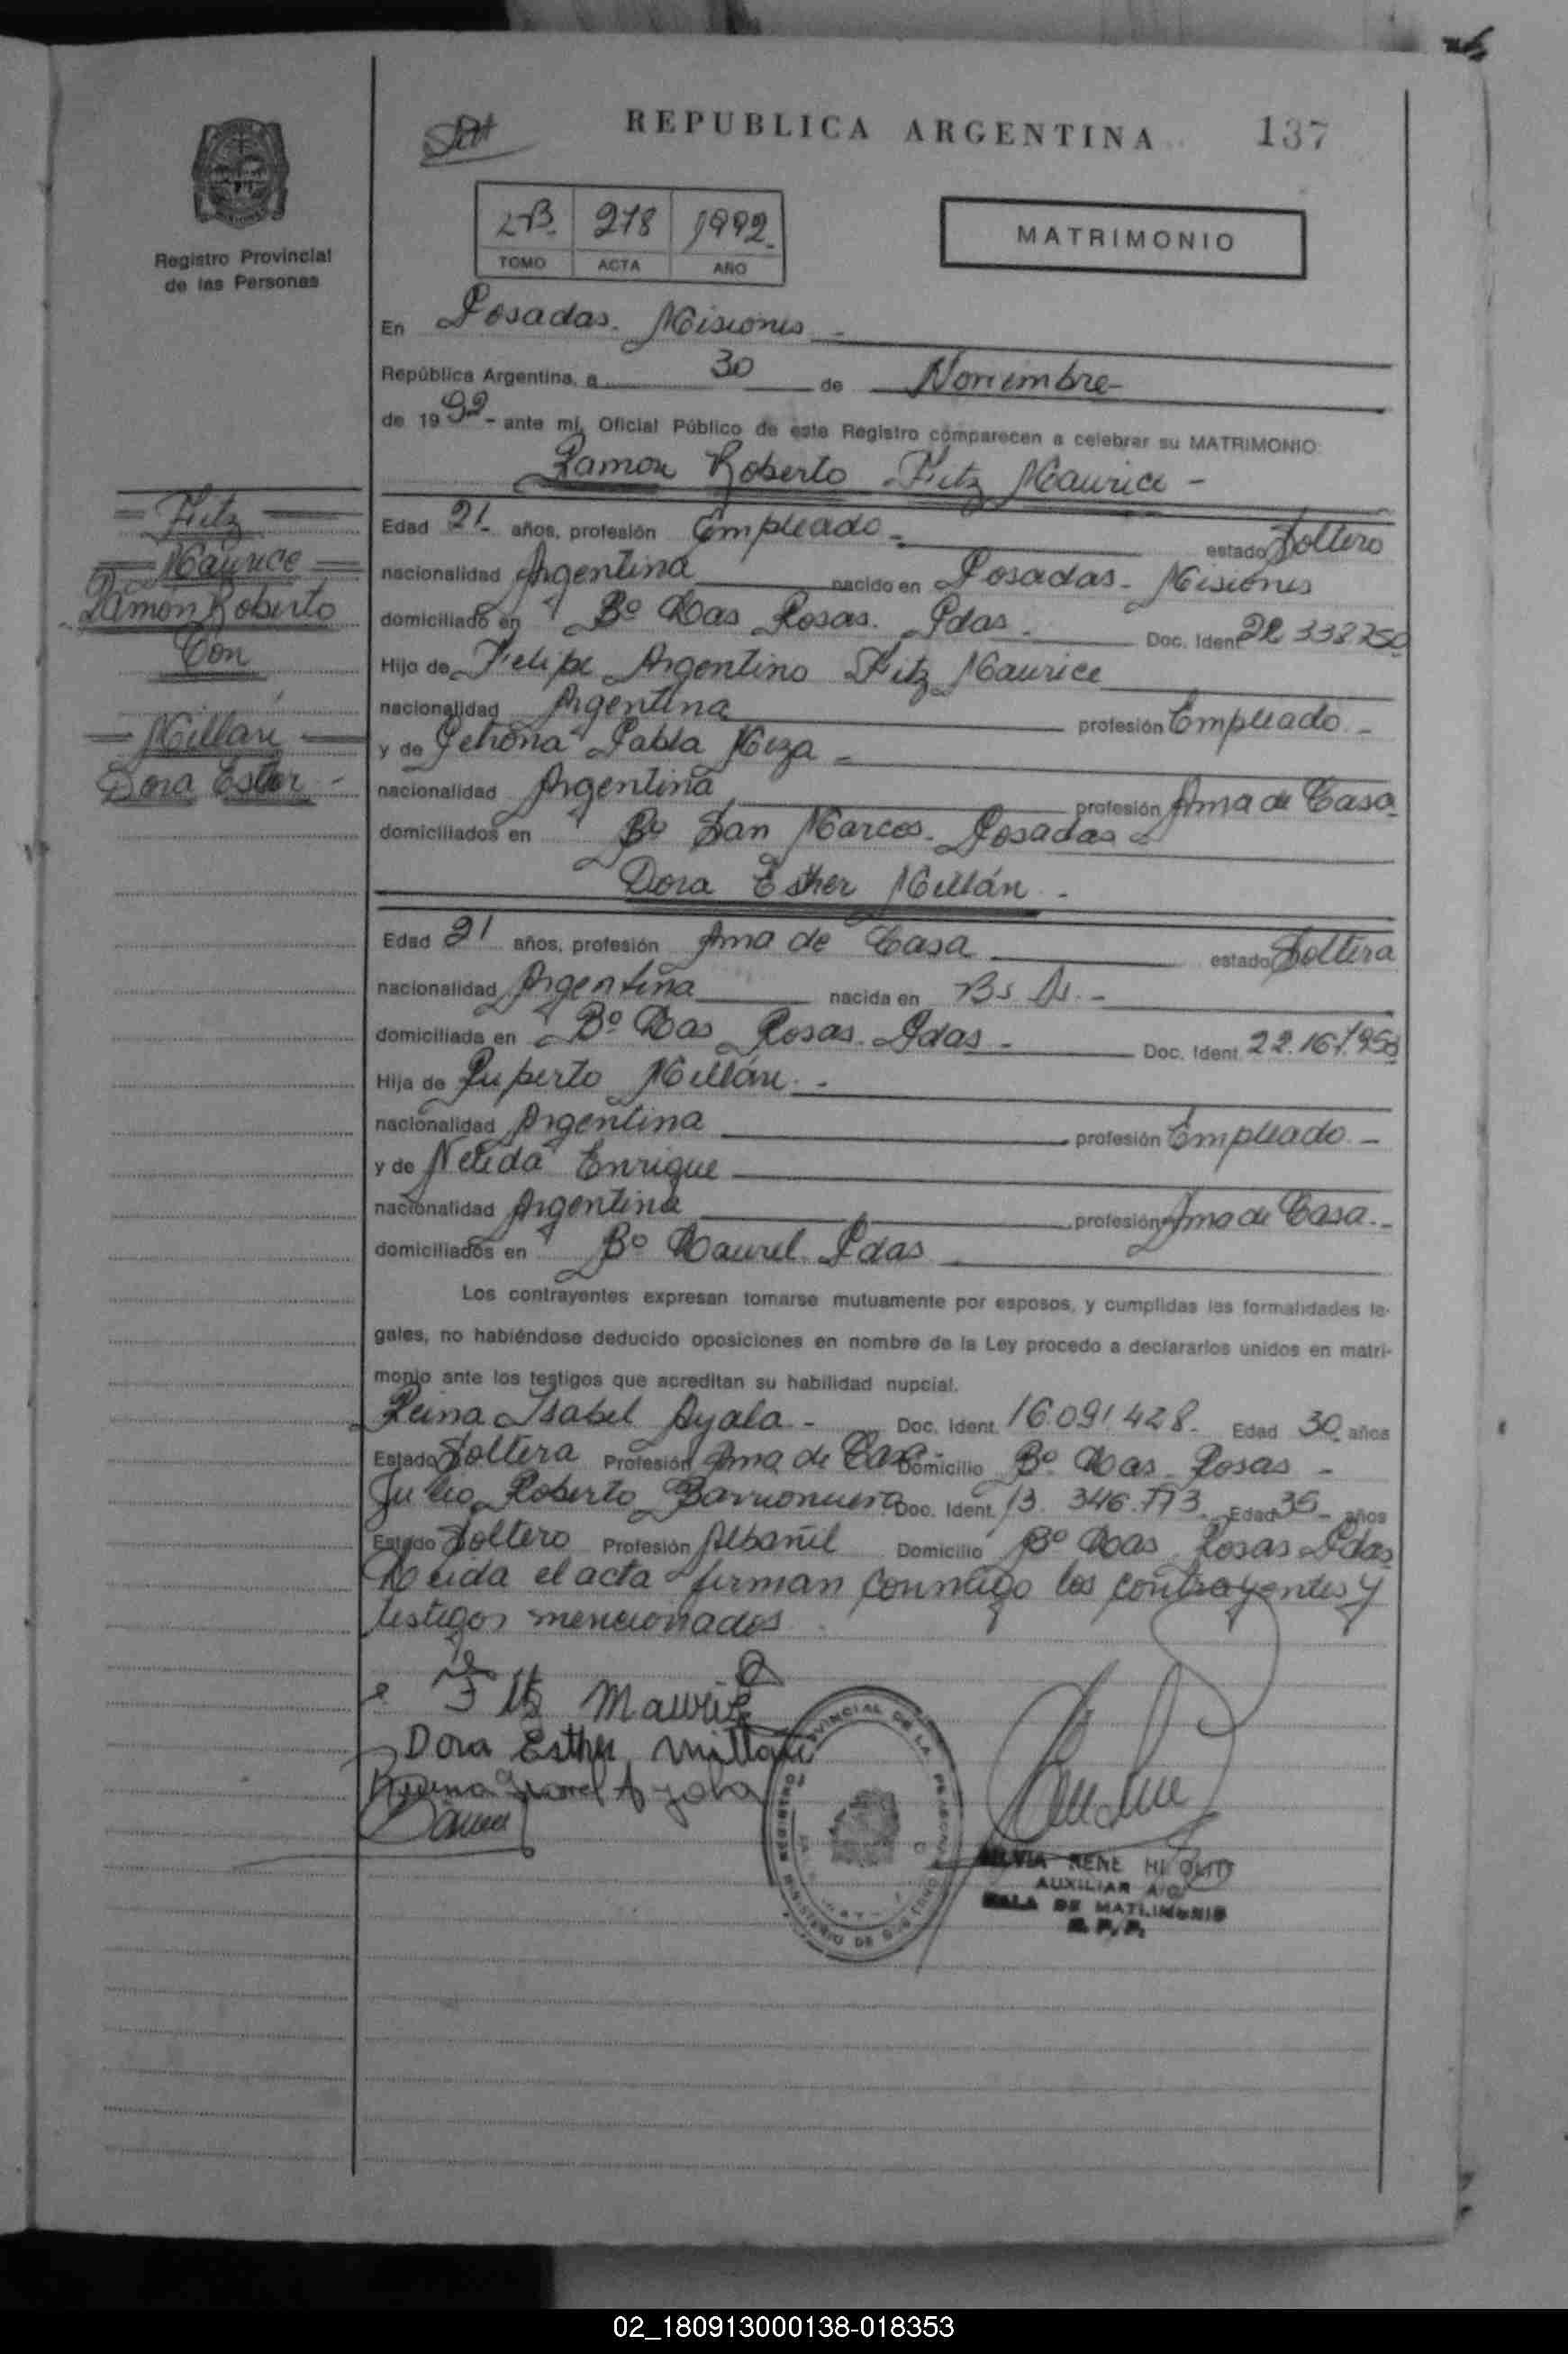 REPUBLICA ARGENTINA 137
Registro Provincial
de las Personas
278 1992.
TOMO ACTA AÑO
MATRIMONIO
En Posadas. Misiones -
República Argentina, a 30 de Noviembre -
de 1992 - ante mí, Oficial Público de este Registro comparecen a celebrar su MATRIMONIO
Ramon Roberto Fitz Maurice -
Fitz
Maurice
Ramon Roberto
Con
Millan
Dora Esther -
Edad 21 años, profesión Empleado - estado Soltero
nacionalidad Argentina nacido en Posadas - Misiones
domiciliado en Bº Las Rosas. Pdas. Doc. Ident 22 338.750
Hijo de Felipe Argentino Fitz Maurice
nacionalidad Argentina profesión Empleado -
y de Pabla Meza -
nacionalidad Argentina profesión Ama de Casa
domiciliados en Bº San Marcos - Posadas -
Dora Esther Millán -
Edad 21 años, profesión Ama de Casa estado Soltera
nacionalidad Argentina nacida en Bs As. -
domiciliada en Bº Las Rosas. Pdas - Doc. Ident.
Hija de Ruperto Millán. -
nacionalidad Argentina profesión Empleado -
y de Nelida Enrique
nacionalidad Argentina profesión Ama de Casa. -
domiciliados en Bº Laurel Pdas
Los contrayentes expresan tomarse mutuamente por esposos, y cumplidas las formalidades le-
gales, no habiéndose deducido oposiciones en nombre de la Ley procedo a declararlos unidos en matri-
monio ante los testigos que acreditan su habilidad nupcial.
Reina Isabel Ayala - Doc. Ident. 16.091.428. Edad 30 años
Estado Soltera Profesión Ama de Casa - Domicilio Bº Las Rosas -
Julio Roberto Barrionuevo Doc. Ident. 13.346.773 Edad 35 años
Estado Soltero Profesión Albañil Domicilio Bº Las Rosas Pdas
Leida el acta firman conmigo los contrayentes y
testigos mencionados.
Fitz Maurice
Dora Esther Millan
Ayala
REGISTRO PROVINCIAL DE LAS PERSONAS
MINISTERIO DE GOBIERNO
SILVIA RENE
AUXILIAR
SALA DE MATRIMONIO
R. P. P.
02_180913000138-018353